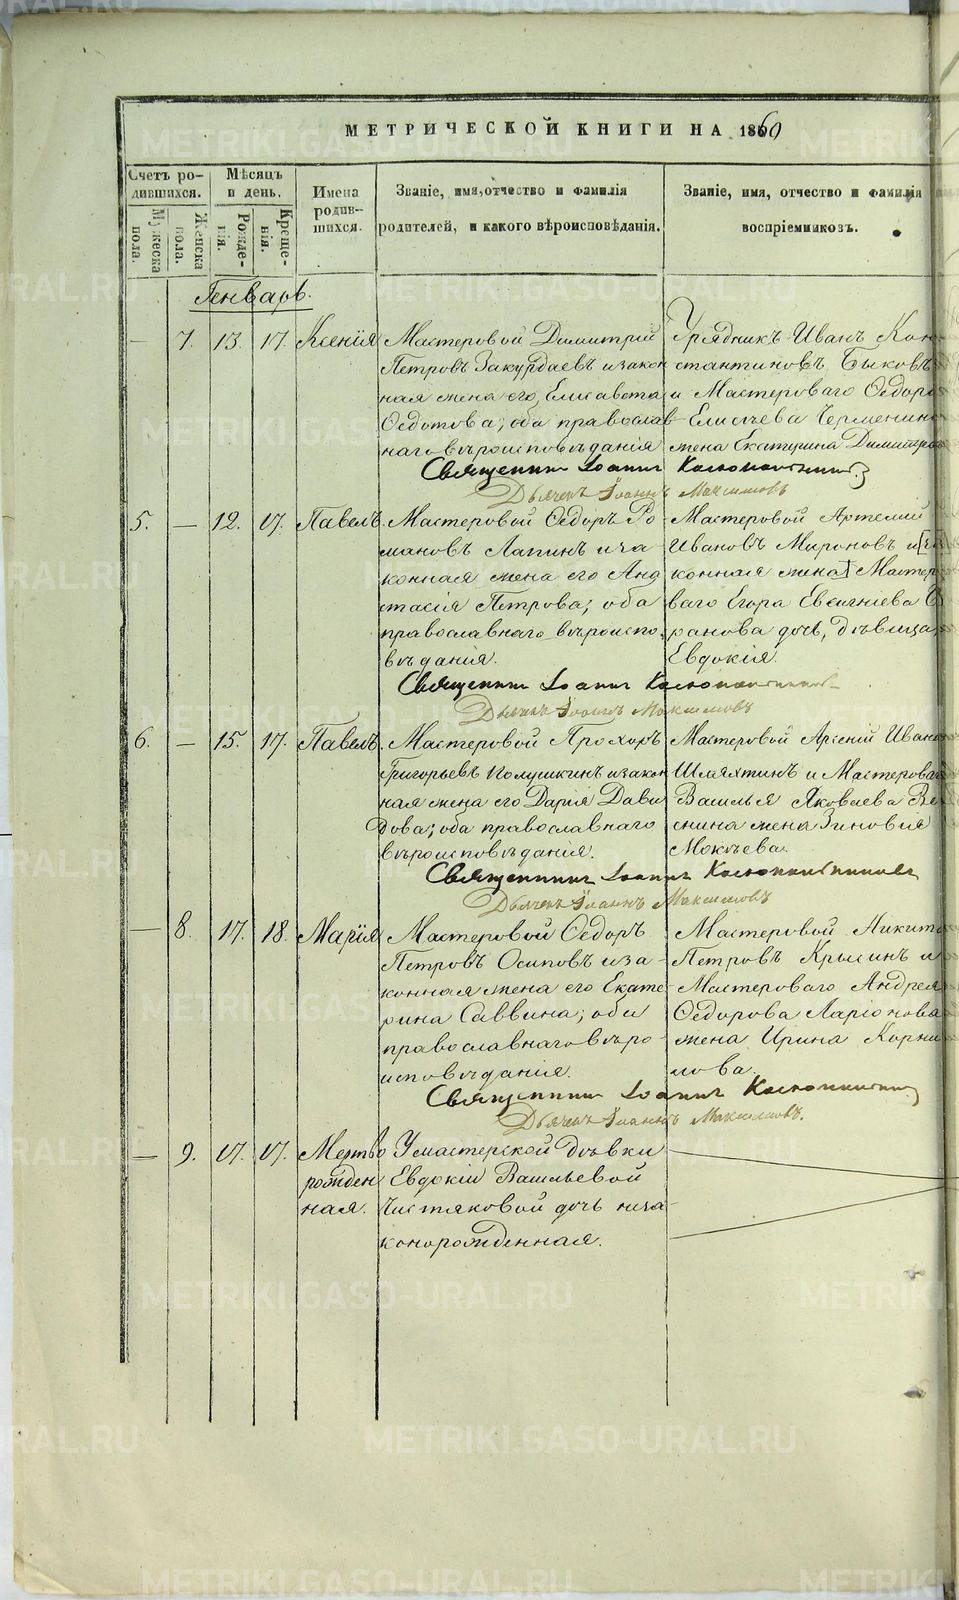 МЕТРИЧЕСКОЙ КНИГИ НА 1860
Счетъ ро-
дившихся.
Мѣсяцъ
и день.
Имена
родив-
шихся.
Званіе, имя, отчество и фамилія
родителей, и какого вѣроисповѣданія.
Званіе, имя, отчество и фамилія
воспріемниковъ.
Мужеска
пола.
Женска
пола.
Рожде-
нія.
Креще-
нія.
Генварь.
— 7. 13. 17. Ксенія
Мастеровой Димитрій
Петровъ Закурдаевъ и закон
ная жена его Елисавета
Ѳедотова; оба православ-
наго вѣроисповѣданія
Урядникъ Иванъ Кон-
стантиновъ Быковъ
и Мастероваго Ѳедора
Елисѣева
жена Екатерина Димитр
Священникъ Іоаннъ
Дьячекъ Іоаннъ Максимовъ
5. — 12. 17. Павелъ.
Мастеровой Ѳедоръ Ро
мановъ Лапинъ и за
конная жена его Анас
тасія Петрова; оба
православнаго вѣроиспо-
вѣданія.
Мастеровой Артемій
Ивановъ Мироновъ и [за
конная жена] Мастеро
ваго Егора Евсигнѣева
ранова дочь, дѣвица
Евдокія.
Священникъ Іоаннъ
Дьячекъ Іоаннъ Максимовъ
6. — 15. 17. Павелъ.
Мастеровой Прохоръ
Григорьевъ Полушкинъ и закон
ная жена его Дарія Дави
дова; оба православнаго
вѣроисповѣданія.
Мастеровой Арсеній Иван
Шляхтинъ и Мастерова
Василья Яковлева Ве
снина жена Зиновія
Мокѣева.
Священникъ Іоаннъ
Дьячекъ Іоаннъ Максимовъ
— 8. 17. 18. Марія
Мастеровой Ѳедоръ
Петровъ Осиповъ и за-
конная жена его Екате-
рина Саввина; оба
православнаго вѣро-
исповѣданія.
Мастеровой Никита
Петровъ Крысинъ и
Мастероваго Андрея
Ѳедорова Ларіонова
жена Ирина Корни
лова.
Священникъ Іоаннъ
Дьячекъ Іоаннъ Максимовъ.
— 9. 17. 17. Мертво
рожден
ная.
У мастерской дѣвки
Евдокіи Васильевой
Чистяковой дочь неза-
конорожденная.
METRIKI.GASO-URAL.RU